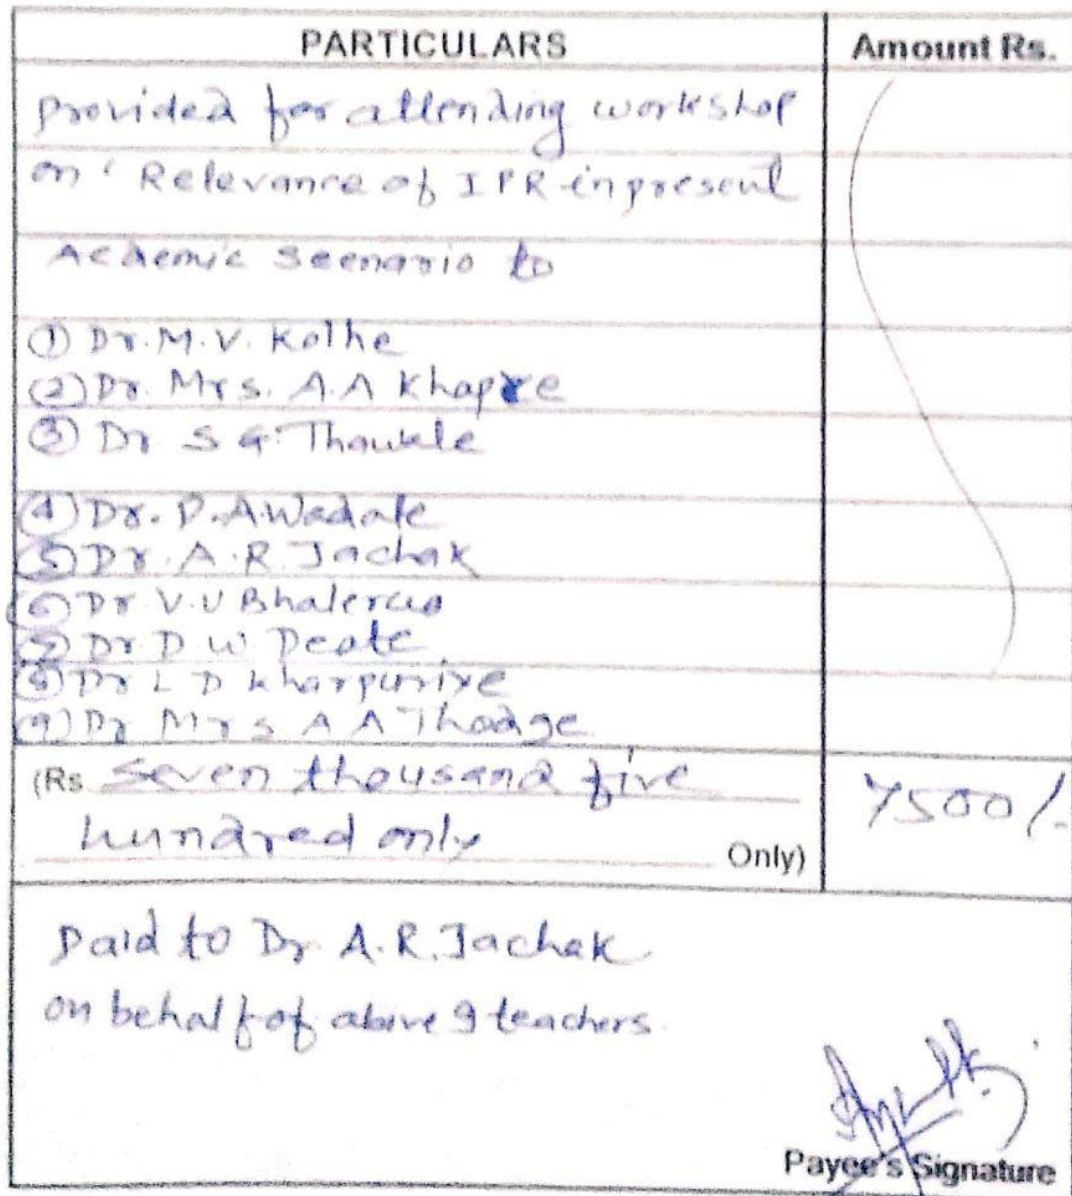 PARTICULARS Amount Rs.
provided for attending workshop
on ' Relevance of IPR in present
Academic Scenario to
① Dr. M. V. Kolhe
② Dr. Mrs. A.A Khapre
③ Dr S G. Thawale
④ Dr. P. A Wadate
⑤ Dr. A. R. Jachak
⑥ Dr V. U Bhalerao
Dr D W Deate
⑧ Dr L D Kharpuriye
⑨ Dr Mrs A A Thadge
(Rs. Seven thousand five
hundred only Only) 7500/-
Paid to Dr A.R. Jachak
on behalf of above 9 teachers.
Payee's Signature